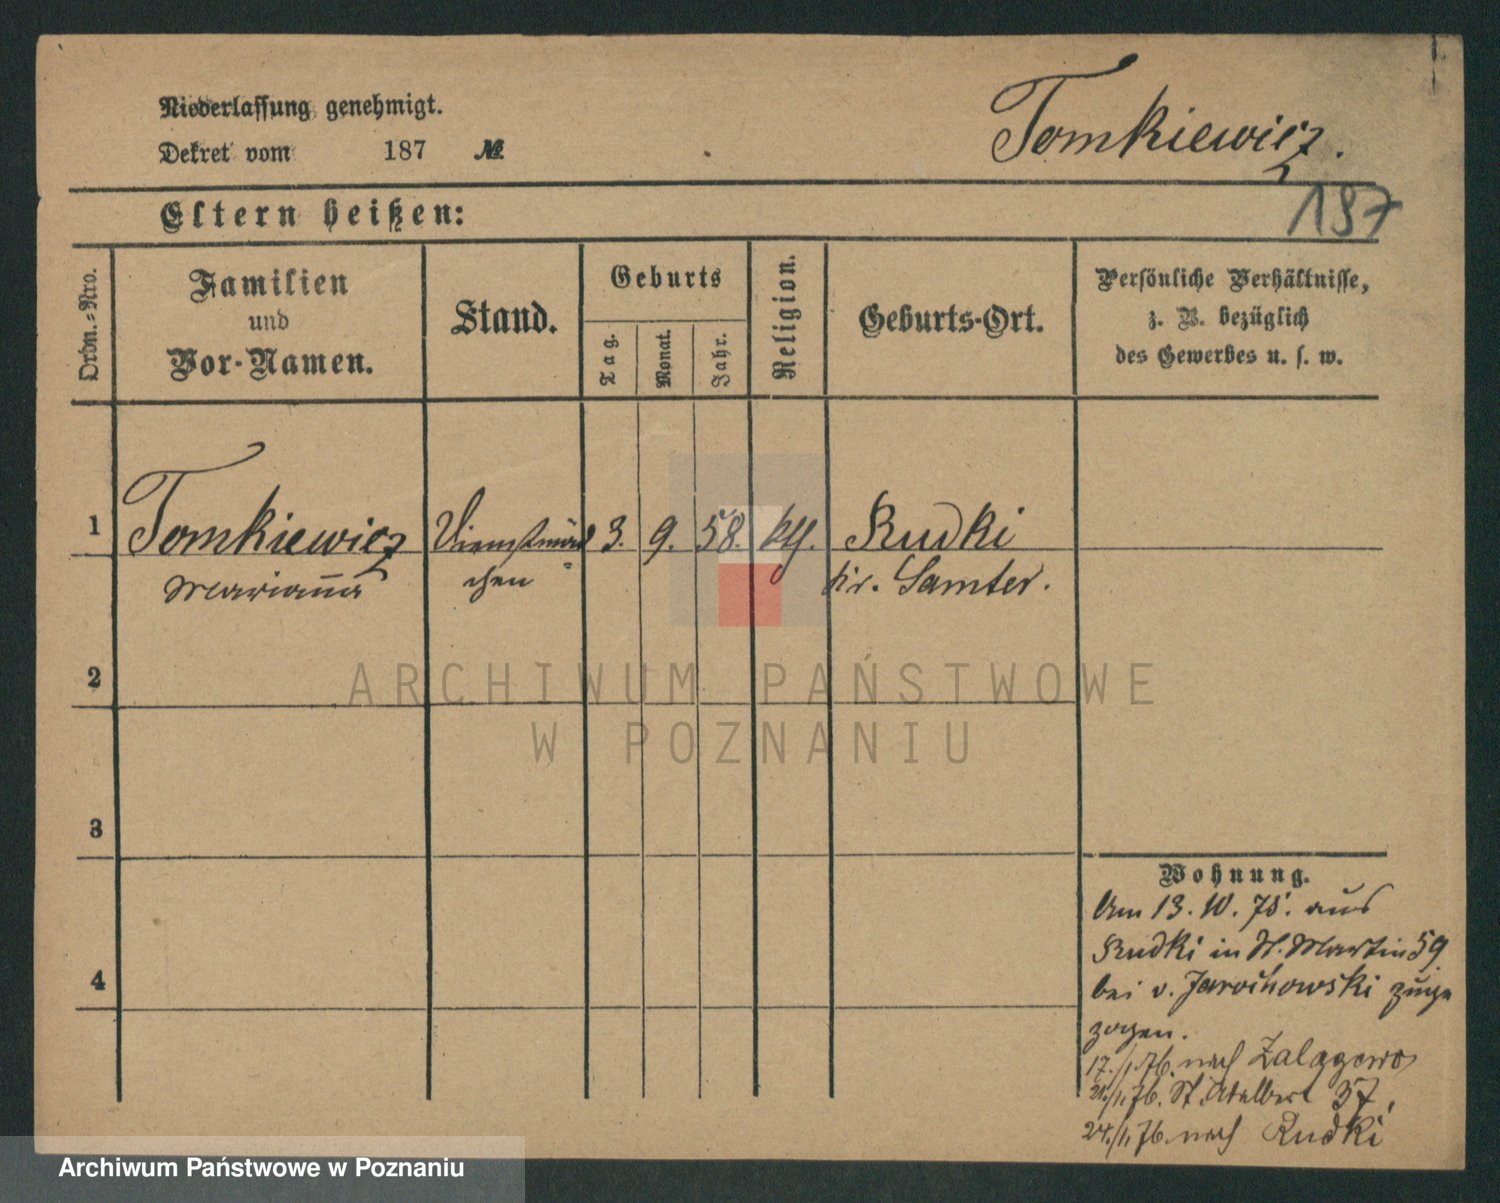 Niederlassung genehmigt.
Dekret vom 187 №
Tomkiewicz.
187
Eltern heißen:
Ordn.=Nro.
Familien
und
Vor-Namen.
Stand.
Geburts
Tag.
Monat.
Jahr.
Religion.
Geburts-Ort.
Persönliche Verhältnisse,
z. B. bezüglich
des Gewerbes u. s. w.
1 Tomkiewicz Dienstmäd 3. 9. 58. kth. Rudki
Marianna chen Kr. Samter.
2
3
4
Wohnung.
Am 13. 10. 75. aus
Rudki in St. Martin 59
bei v. Jarochowski zuge
zogen.
17./1. 76. nach
21./1. 76. St. Adalbert 37,
24./1. 76. nach Rudki
ARCHIWUM PAŃSTWOWE
W POZNANIU
Archiwum Państwowe w Poznaniu